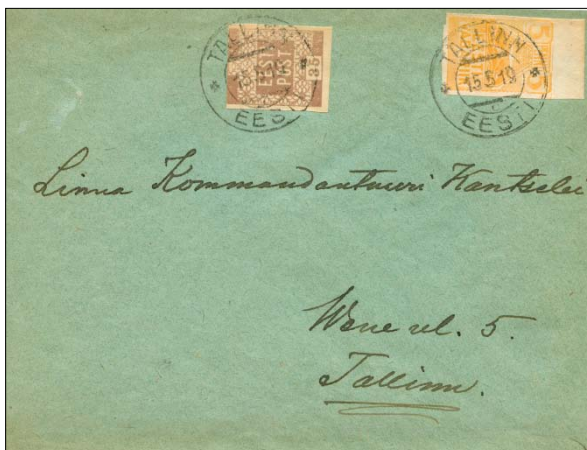 TALLINN
15.5.19
EESTI
EESTI
POST
35
TALLINN
15.5.19
EESTI
Linna Kommandantuuri Kantselei
Wene ul. 5.
Tallinn.